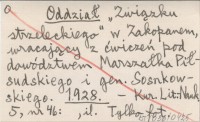 a Oddział "Związku
strzeleckiego" w Zakopanem,
wracający z ćwiczeń pod
dowództwem Marszałka Pił-
sudskiego i gen. Sosnkow-
skiego. 1928. - Kur. Lit. Nauk
5, nr 46: , il. Tylko